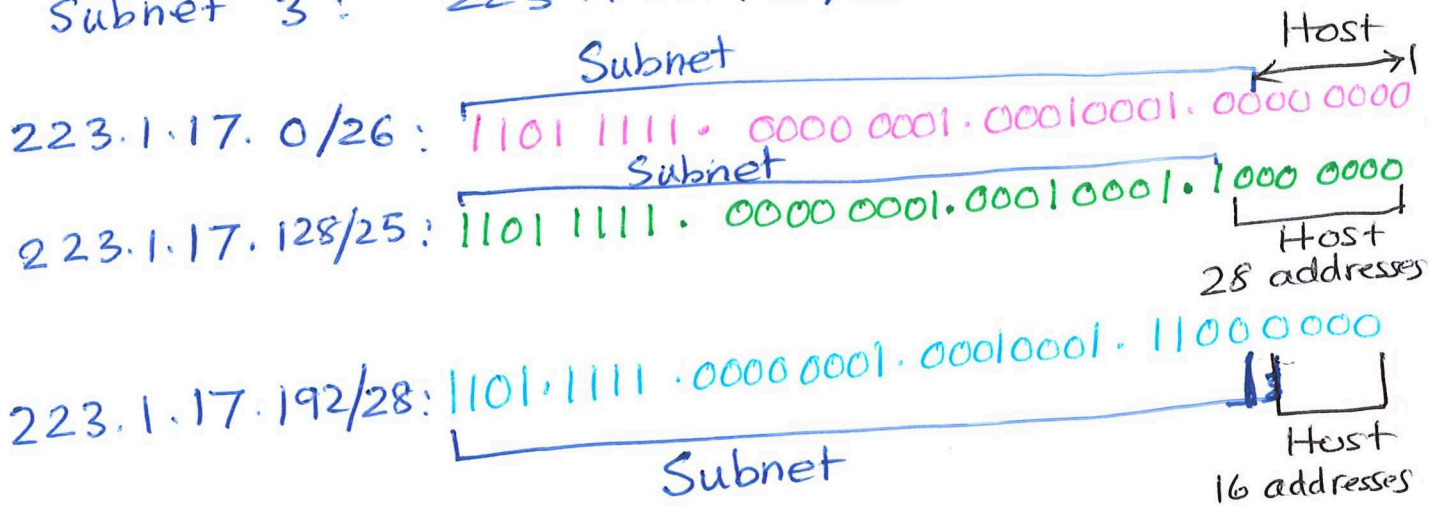 Subnet 3:
Subnet Host
223.1.17.0/26: 1101 1111. 0000 0001.00010001.0000 0000
Subnet
223.1.17.128/25: 1101 1111. 0000 0001.0001 0001.1000 0000
Host
28 addresses
223.1.17.192/28: 1101.1111.0000 0001.00010001.11000000
Host
Subnet
16 addresses